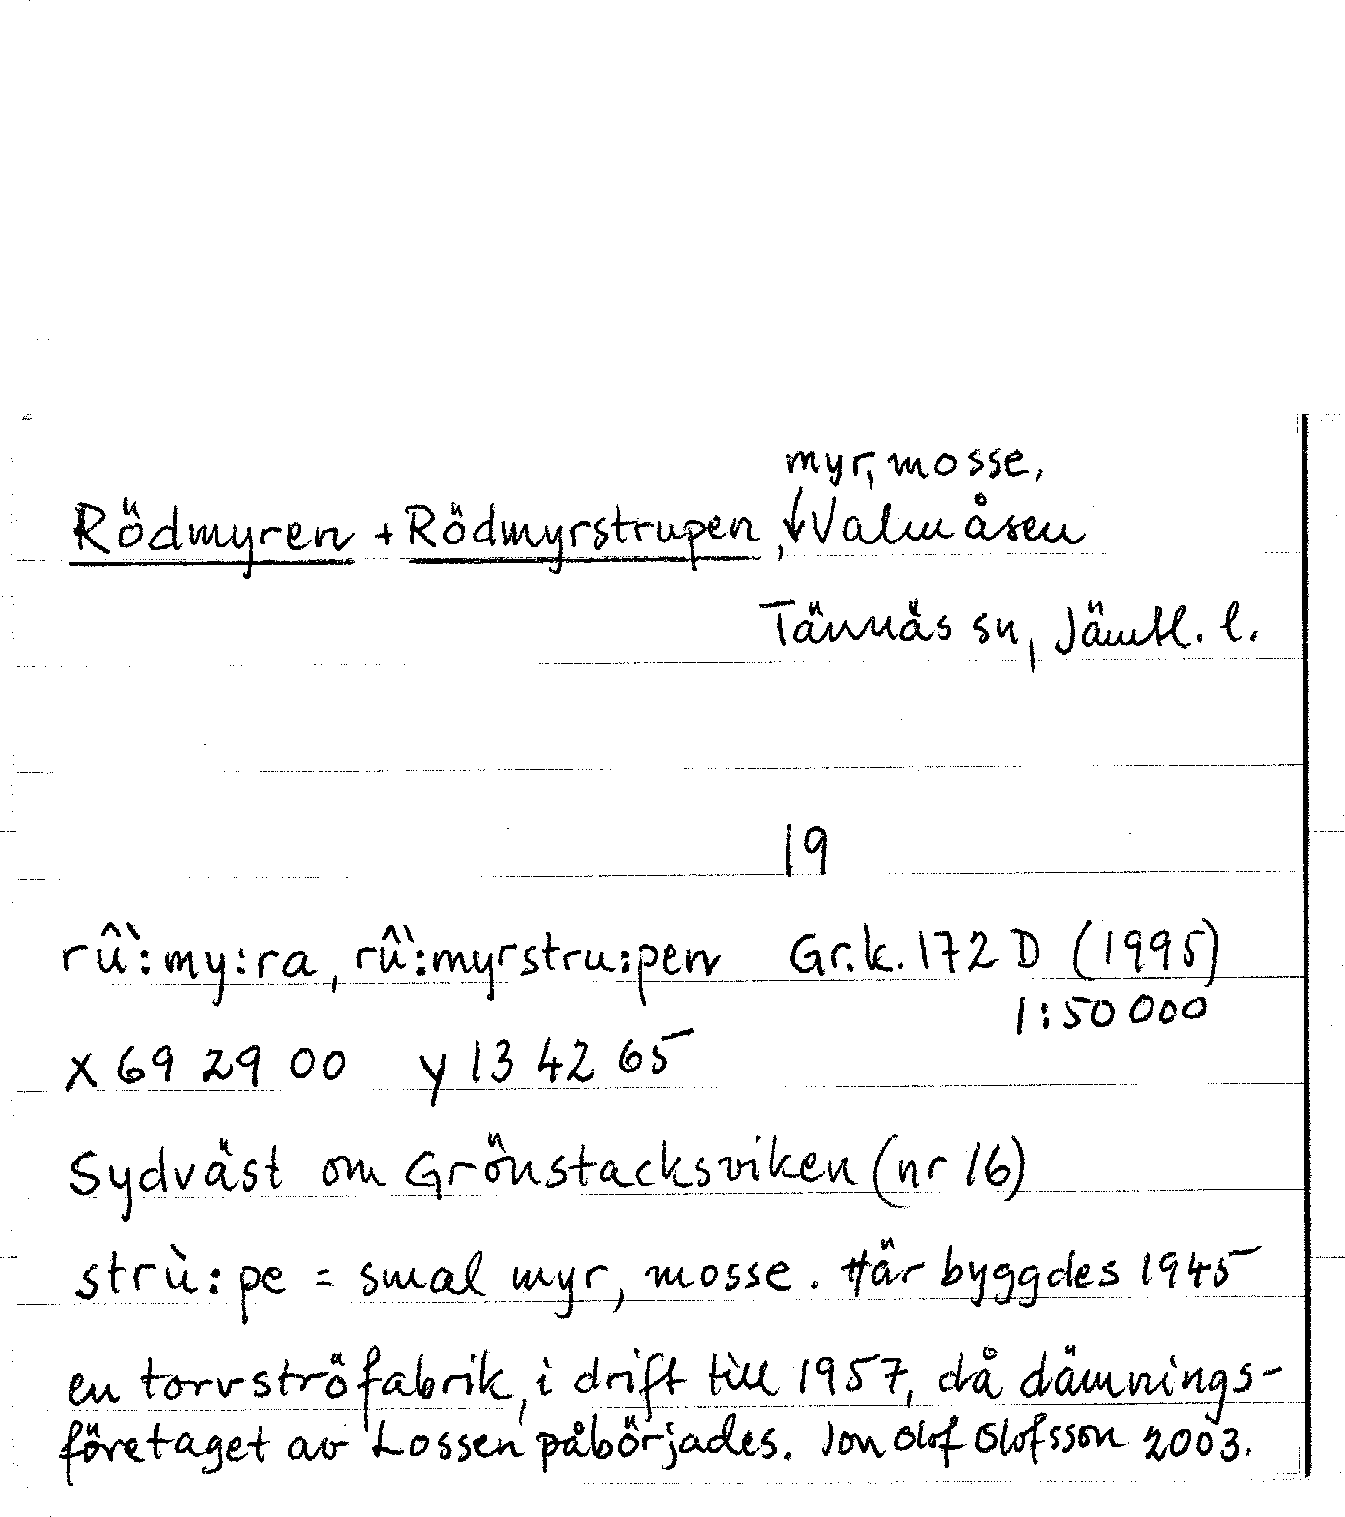 myr, mosse,
Rödmyren + Rödmyrstrupen, ↓Valmåsen
Tännäs sn, Jämtl. l.
19
rû̀:my:ra, rû̀:myrstru:pen Gr.k. 172 D (1995)
1:50 000
x 69 29 00 y 13 42 65
Sydväst om Grönstacksviken (nr 16)
strù:pe = smal myr, mosse. Här byggdes 1945
en torvströfabrik, i drift till 1957, då dämnings-
företaget av Lossen påbörjades. Jon Olof Olofsson 2003.